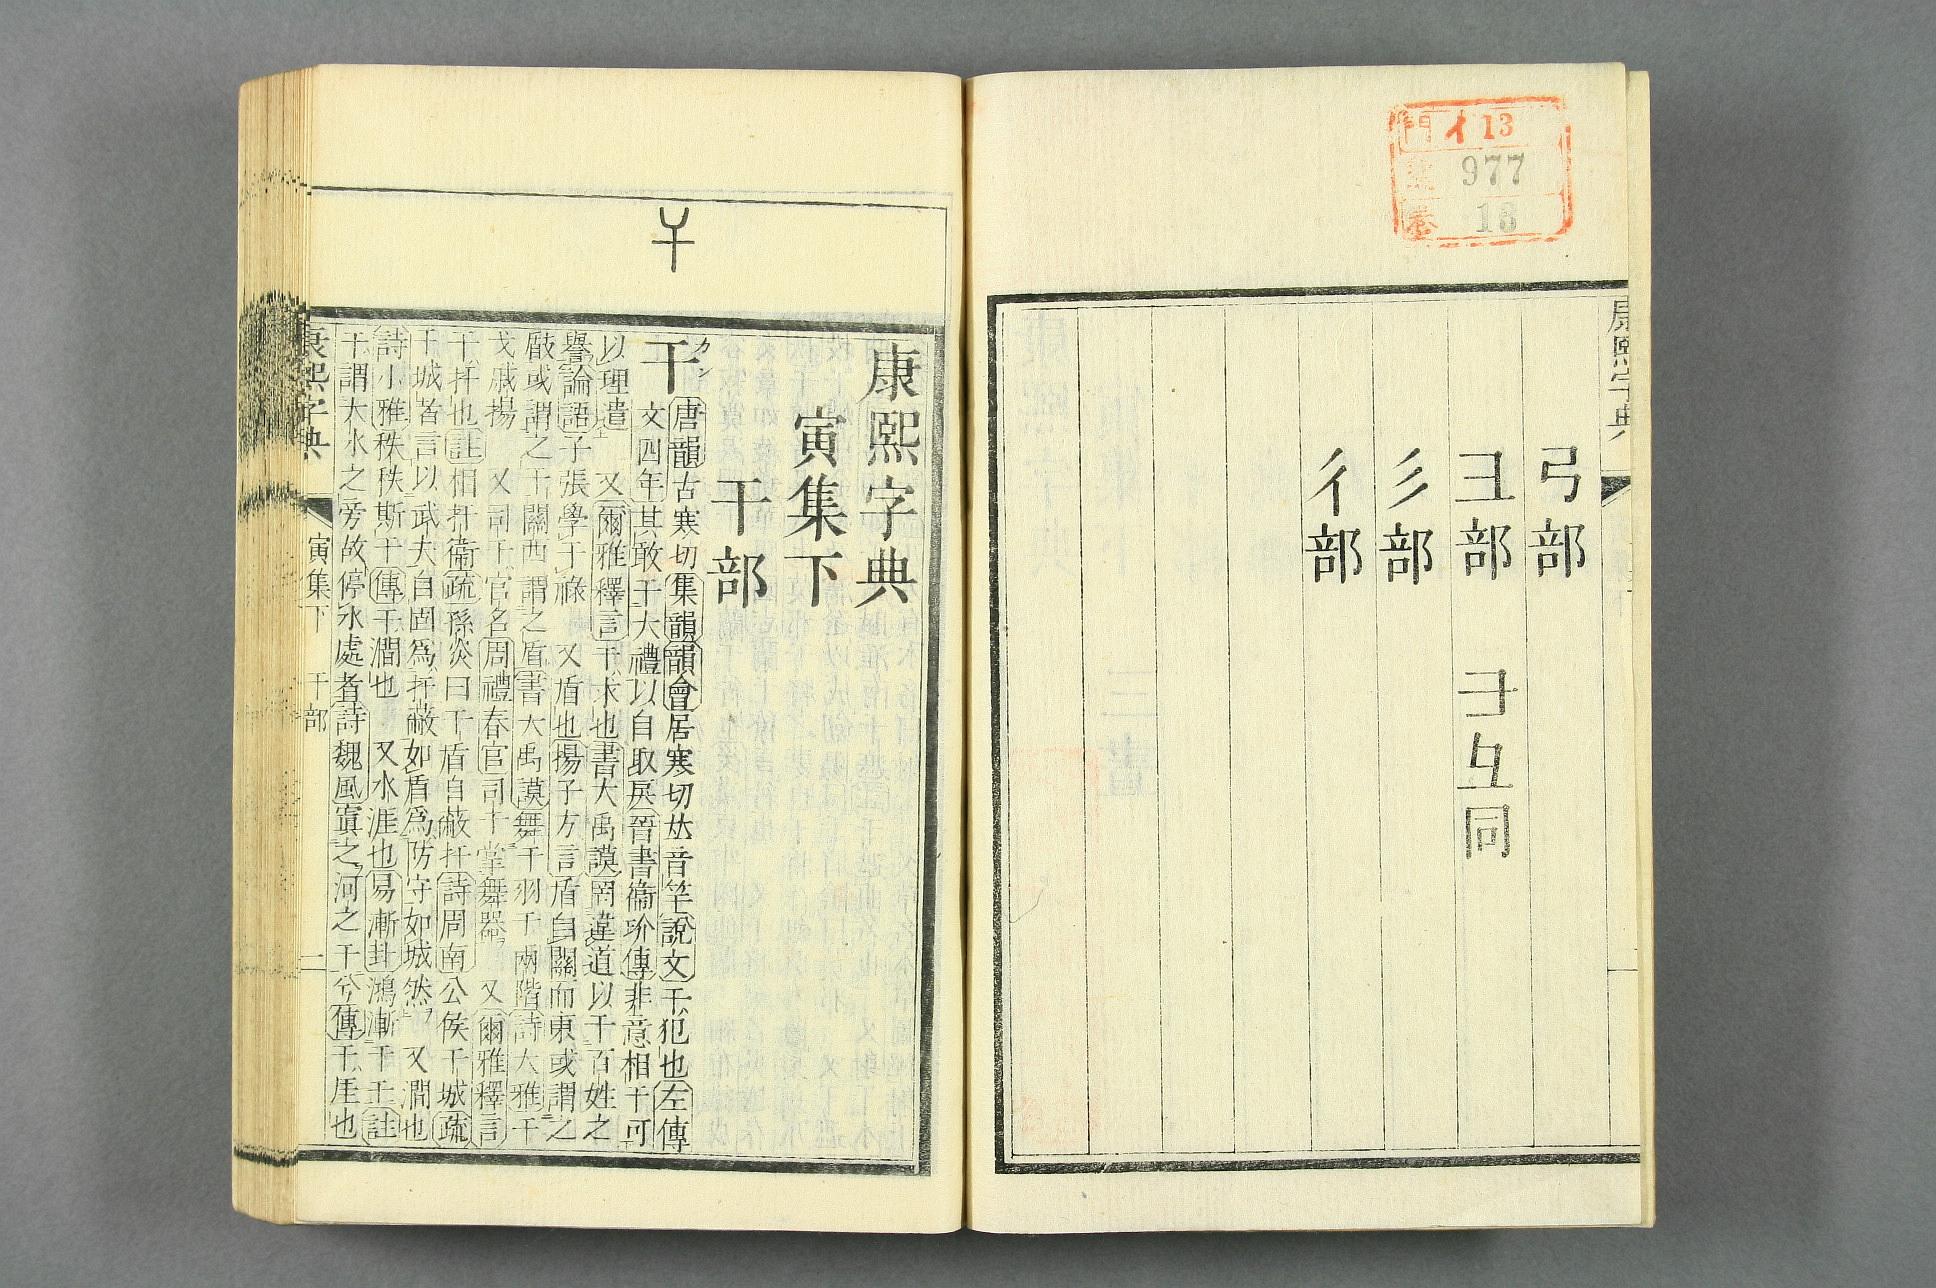 門 イ 13
977
18
康熙字典
弓部
彐部 彐彑同
彡部
彳部
一
康熙字典
寅集下
干部
干
カン
干
唐韻古寒切集韻韻會居寒切𠀤音竿說文干犯也左傳
文四年其敢干大禮以自取戾晉書衞玠傳非意相干可
以理遣 又爾雅釋言干求也書大禹謨罔違道以干百姓之
譽論語子張學干祿 又盾也揚子方言盾自關而東或謂之
瞂或謂之干關西謂之盾書大禹謨舞干羽于兩階詩大雅干
戈戚揚 又司干官名周禮春官司干掌舞器 又爾雅釋言
干扞也註相扞衞疏孫炎曰干盾自蔽扞詩周南公侯干城疏
干城者言以武夫自固爲扞蔽如盾爲防守如城然 又澗也
詩小雅秩秩斯干傳干澗也 又水涯也易漸卦鴻漸于干註
干謂大水之旁故停水處者詩魏風寘之河之干兮傳干厓也
康熙字典
寅集下 干部
二